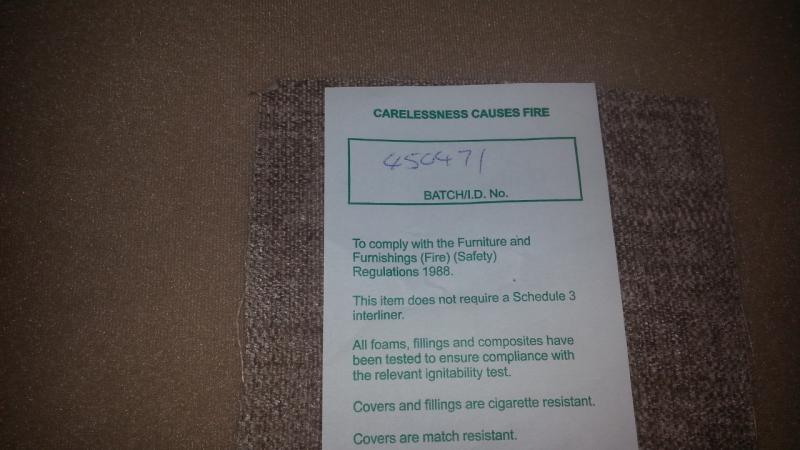 CARELESSNESS CAUSES FIRE
450471
BATCH/I.D. No.
To comply with the Furniture and
Furnishings (Fire) (Safety)
Regulations 1988.
This item does not require a Schedule 3
interliner.
All foams, fillings and composites have
been tested to ensure compliance with
the relevant ignitability test.
Covers and fillings are cigarette resistant.
Covers are match resistant.